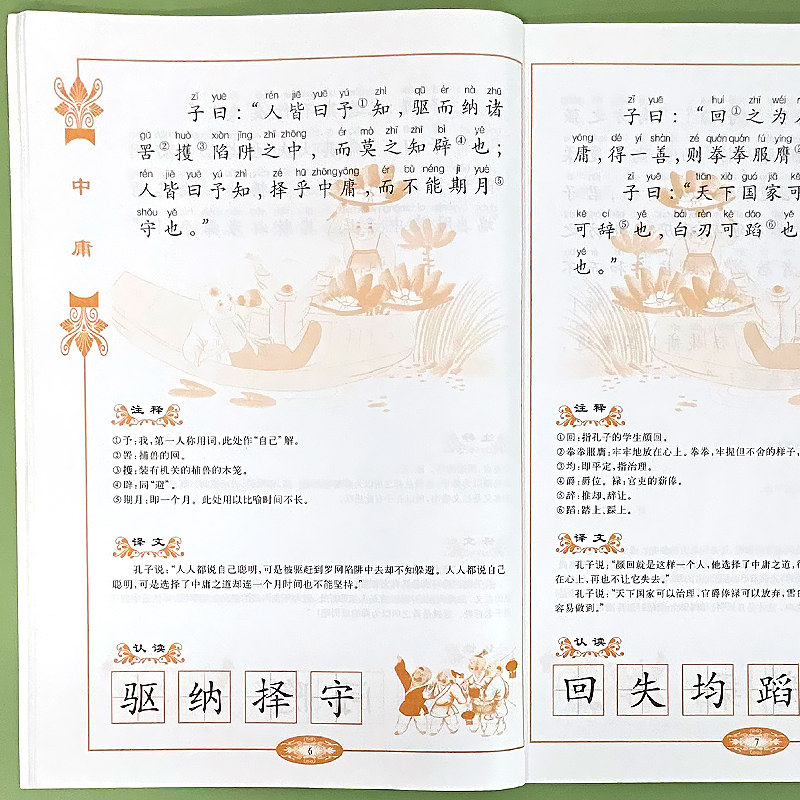 中庸
zǐ yuē rén jiē yuē yú zhì qū ér nà zhū
子曰：“人皆曰予①知，驱而纳诸
gǔ huò xiàn jǐng zhī zhōng ér mò zhī zhī bì yě
罟②擭③陷阱之中，而莫之知辟④也；
rén jiē yuē yú zhì zé hū zhōng yōng ér bù néng jī yuè
人皆曰予知，择乎中庸，而不能期月⑤
shǒu yě
守也。”
注释
①予：我，第一人称用词，此处作“自己”解。
②罟：捕兽的网。
③擭：装有机关的捕兽的木笼。
④辟：同“避”。
⑤期月：即一个月。此处用以比喻时间不长。
译文
孔子说：“人人都说自己聪明，可是被驱赶到罗网陷阱中去却不知躲避。人人都说自己
聪明，可是选择了中庸之道却连一个月时间也不能坚持。”
认读
驱 纳 择 守
6
zǐ yuē huí zhī wéi
子曰：“回①之为
yōng dé yí shàn zé quán quán fú yīng
庸，得一善，则拳拳服膺②
zǐ yuē tiān xià guó jiā kě
子曰：“天下国家可
kě cí yě bái rèn kě dǎo yě
可辞⑤也，白刃可蹈⑥也
yě
也。”
注释
①回：指孔子的学生颜回。
②拳拳服膺：牢牢地放在心上。拳拳，牢握但不舍的样子，
③均：即平定，指治理。
④爵：爵位。禄：官吏的薪俸。
⑤辞：推却、辞让。
⑥蹈：踏上、踩上。
译文
孔子说：“颜回就是这样一个人，他选择了中庸之道，
在心上，再也不让它失去。”
孔子说：“天下国家可以治理，官爵俸禄可以放弃，雪
容易做到。”
认读
回 失 均 蹈
7